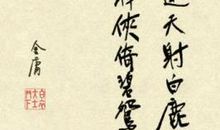 連天射白鹿
神俠倚碧鴛
金庸